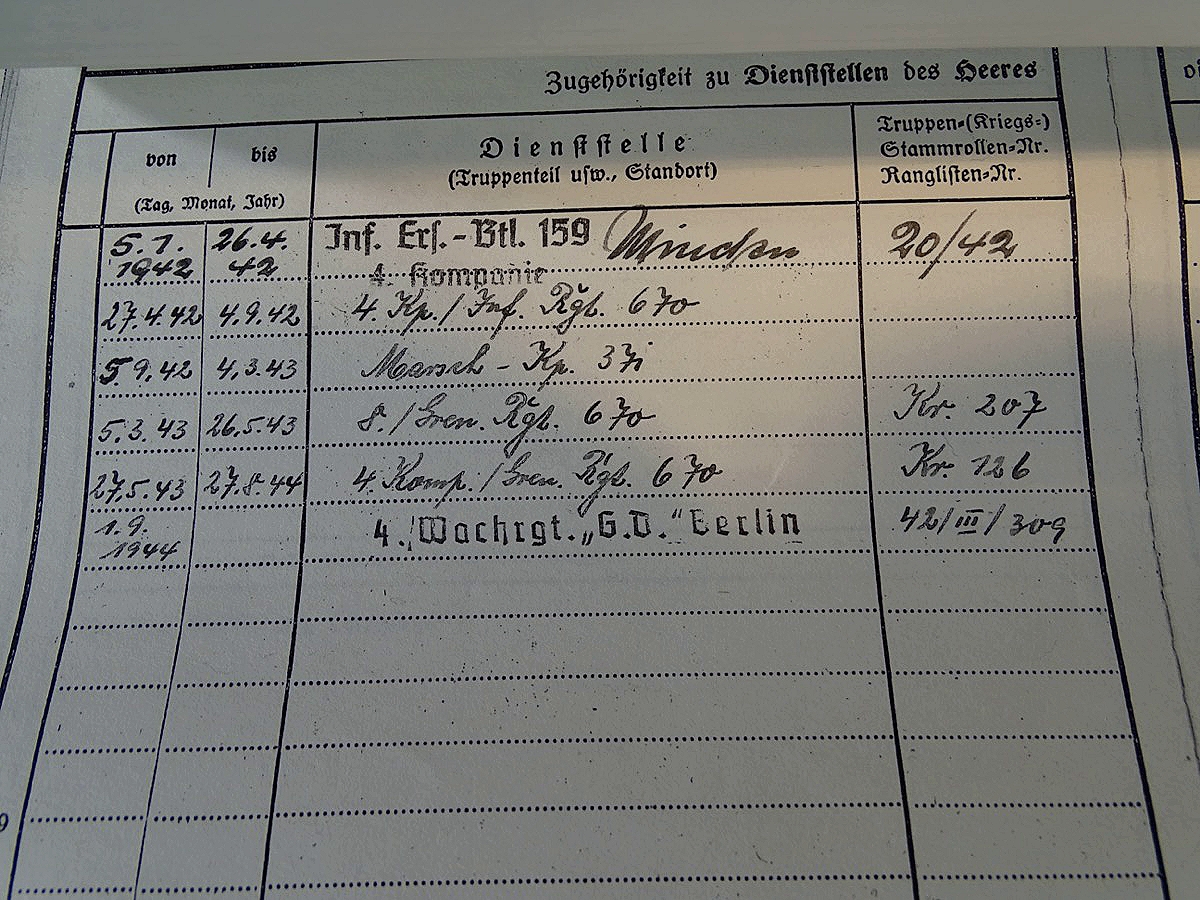 Zugehörigkeit zu Dienststellen des Heeres
von
bis
(Tag, Monat, Jahr)
Dienststelle
(Truppenteil usw., Standort)
Truppen-(Kriegs-)
Stammrollen-Nr.
Ranglisten-Nr.
5.1. 26.4. Inf. Ers.-Btl. 159 Minden 20/42
1942 42 4. Kompanie
27.4.42 4.9.42 4. Kp./Inf. Rgt. 670
5.9.42 4.3.43 Marsch-Kp.
5.3.43 26.5.43 8./Gren. Rgt. 670 Kr. 207
27.5.43 27.8.44 4. Komp./Gren. Rgt. 670 Kr. 126
1.9. 4./Wachrgt. „G.D.“ Berlin 42/III/309
1944
9